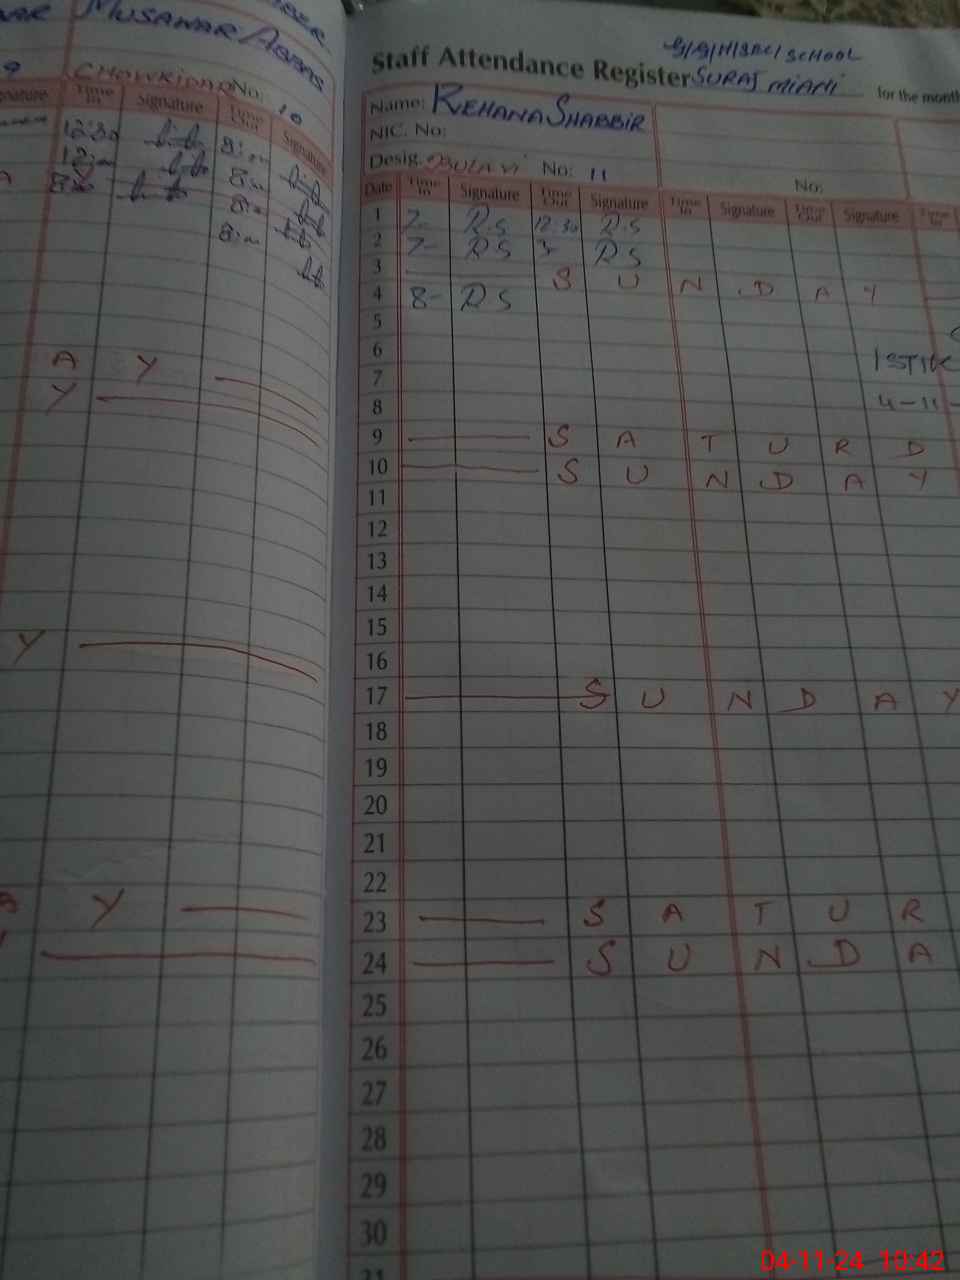 MUSAWAR ABBAS
CHOWKIDAR No: 10
Time In Signature Time Out Signature
12:30
A Y
Y
Y
Y
G/G/H/SEC/SCHOOL
Staff Attendance Register SURAJ MIANI for the month
Name: REHANA SHABBIR
NIC. No:
Desig. No: 11
No:
Date Time In Signature Time Out Signature Time In Signature Time Out Signature Time In
1 7- R.S 12:30 R.S
2 7- RS RS
3 S U N D A Y
4 8- RS
5
6
7
8 4-11-
9 S A T U R D
10 S U N D A Y
11
12
13
14
15
16
17 S U N D A Y
18
19
20
21
22
23 S A T U R
24 S U N D A
25
26
27
28
29
30
31
04-11-24 10:42